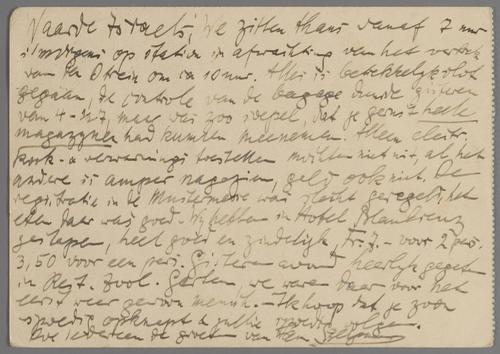 Waarde Israels, We zitten thans vanaf 7 uur
's morgens op station in afwachting van het vertrek
van den D trein om ca 10 uur. Alles is betrekkelijk vlot
gegaan, de controle van de bagage duurde gisteren
van 4-½7, maar was zoo soepel, dat je gerust heele
magazijnen had kunnen meenemen. Alleen electr.
kook- & verwarmings toestellen mochten niet uit, al het
andere is amper nagezien, geld ook niet. De
registratie in de Mustermesse was slecht geregeld, het
eten daar was goed. Wij hebben in Hotel Blaukreuz
geslapen, heel goed en zindelijk, Fr. 7.- voor 2 pers.
3,50 voor een pers. Gisteren avond heerlijk gegeten
in Rest. Zool. Garten, we waren daar voor het
eerst weer gewoon mensch. - Ik hoop dat je zoon
spoedig opknapt & jullie spoedig volgen.
iedereen de groet van